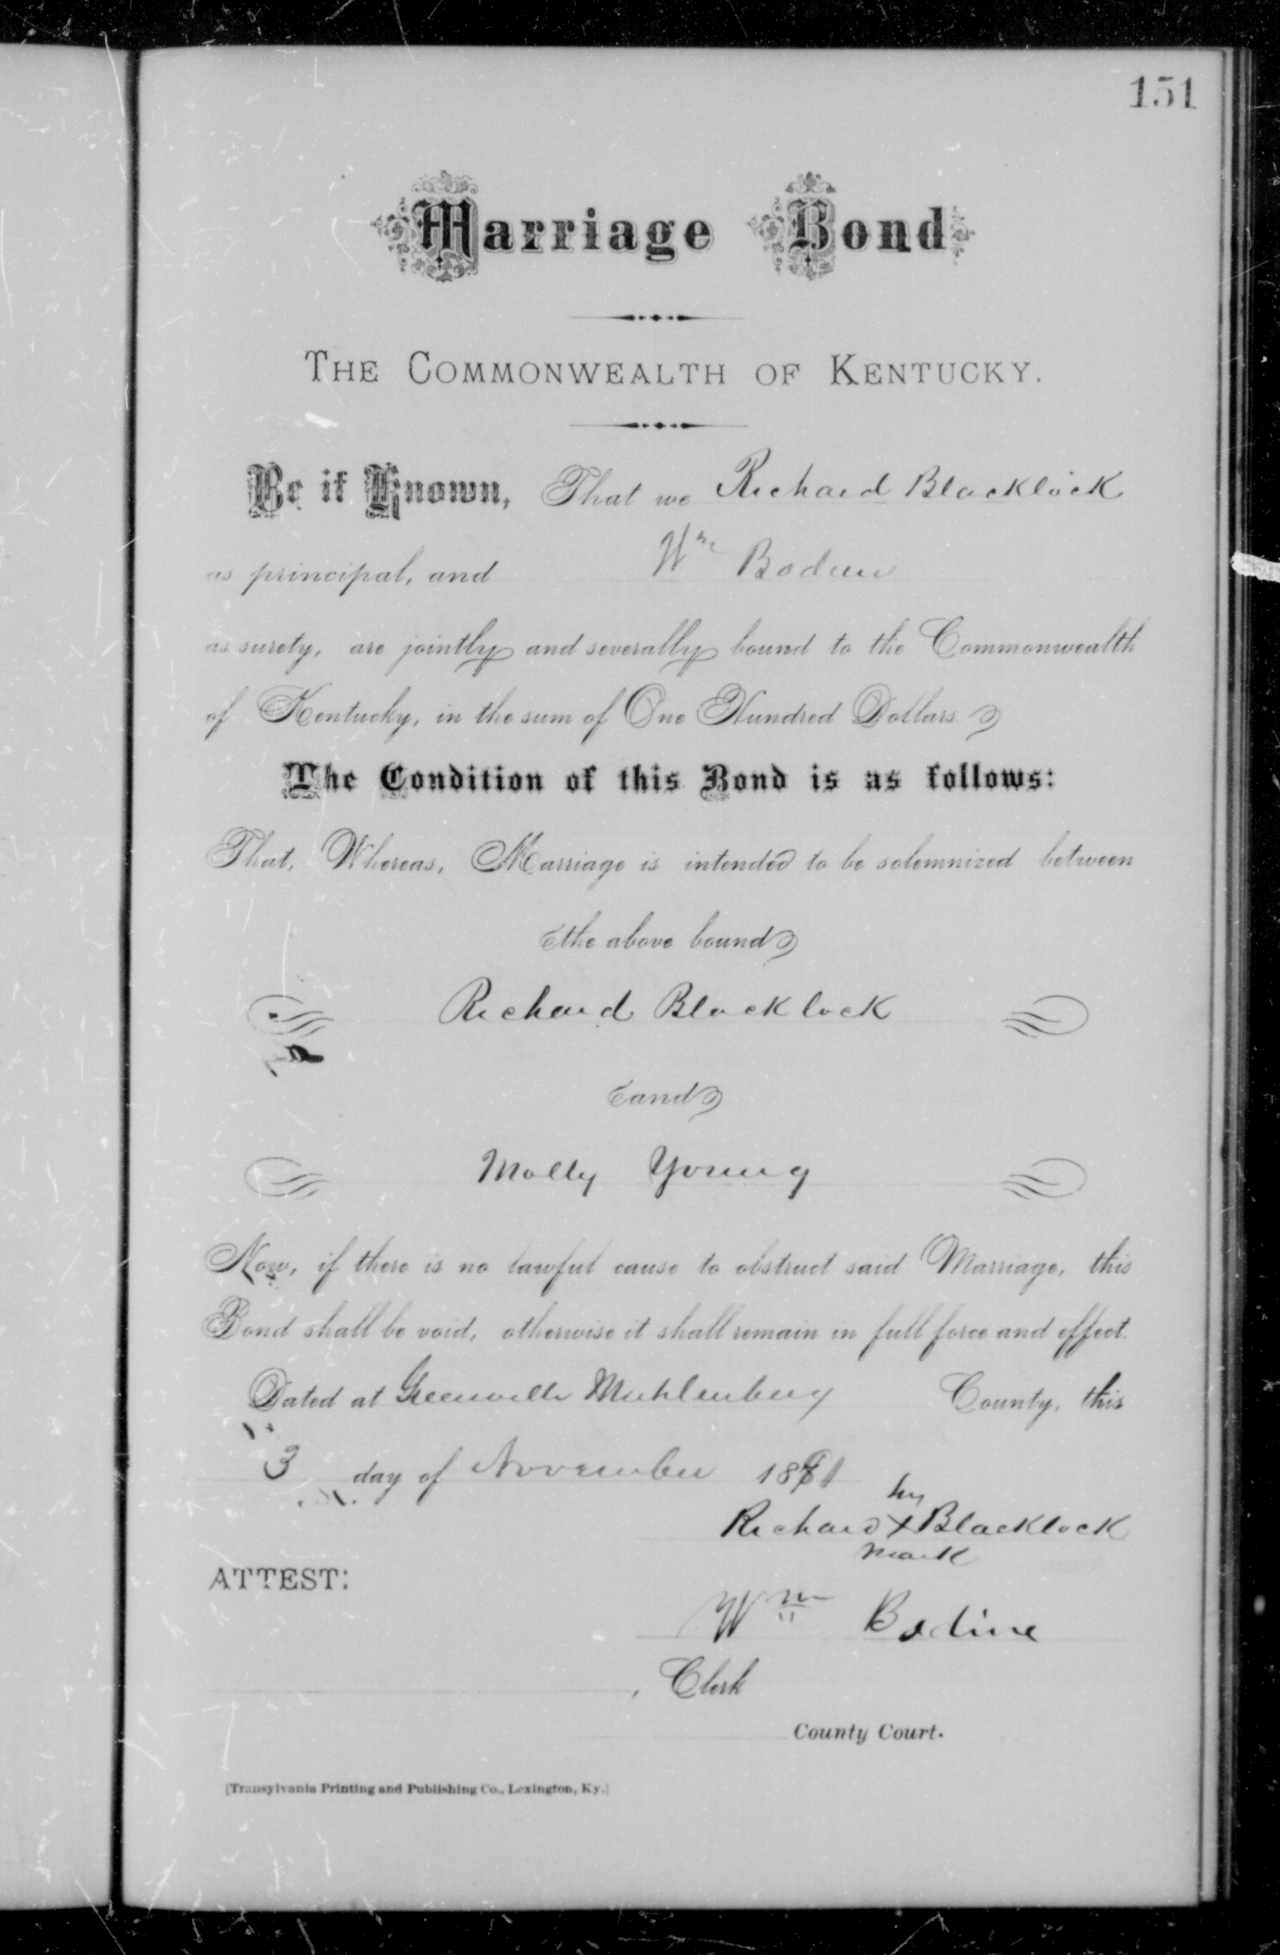 151
Marriage Bond
THE COMMONWEALTH OF KENTUCKY.
Be it Known, That we Richard Blacklock
as principal, and Wm Bodine
as surety, are jointly and severally bound to the Commonwealth
of Kentucky, in the sum of One Hundred Dollars
The Condition of this Bond is as follows:
That, Whereas, Marriage is intended to be solemnized between
the above bound
Richard Blacklock
and
Molly Young
Now, if there is no lawful cause to obstruct said Marriage, this
Bond shall be void, otherwise it shall remain in full force and effect.
Dated at Greenville Muhlenberg County, this
3 day of November 1881
his
Richard X Blacklock
mark
ATTEST:
Wm Bodine
, Clerk
County Court.
[Transylvania Printing and Publishing Co., Lexington, Ky.]